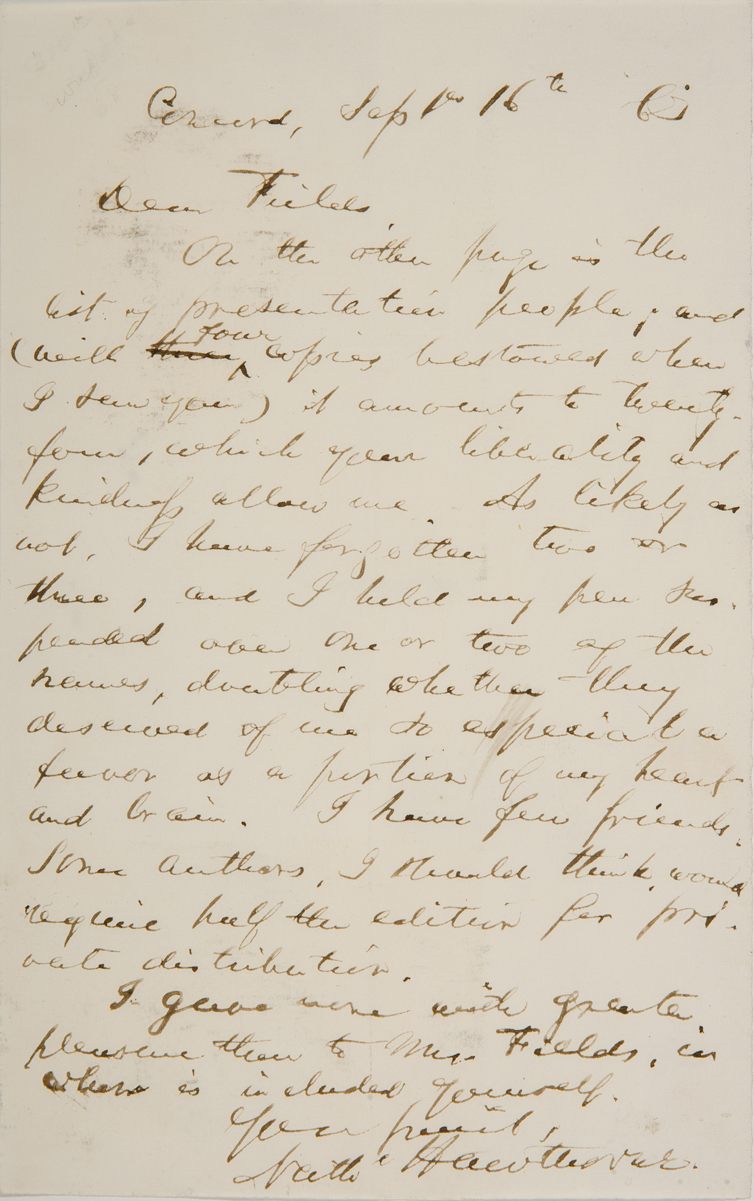 Concord, Sept 16th 63
Dear Fields,
On the other page is the
list of presentation people, and
(with three four copies bestowed when
I saw you) it amounts to twenty-
four, which your liberality and
kindness allow me. As likely as
not, I have forgotten two or
three, and I held my pen sus-
pended over one or two of the
names, doubting whether they
deserved of me so especial a
favor as a portion of my heart
and brain. I have few friends.
Some authors, I should think, would
require half the edition for pri-
vate distribution.
I gave none with greater
pleasure than to Mrs. Fields, in
whom is included yourself.
Your friend,
Nathl Hawthorne.